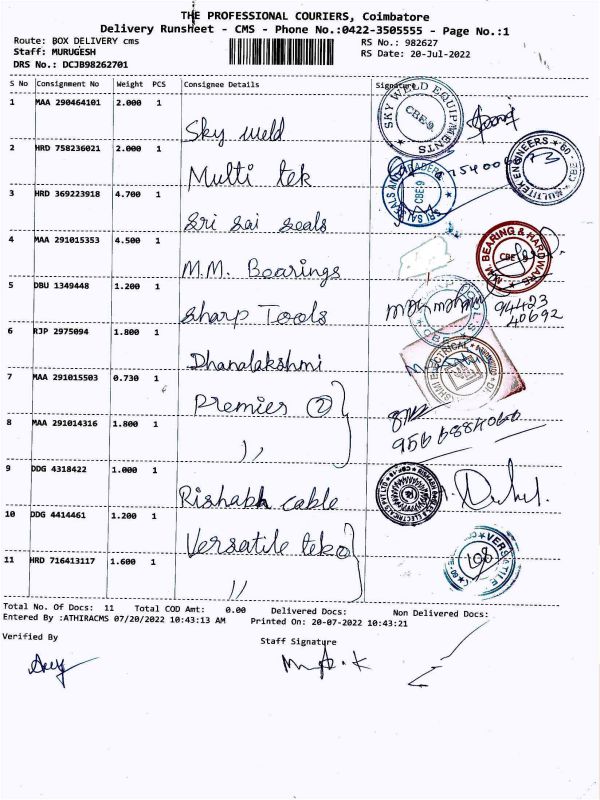 THE PROFESSIONAL COURIERS, Coimbatore
Delivery Runsheet - CMS - Phone No.:0422-3505555 - Page No.:1
Route: BOX DELIVERY cms
Staff: MURUGESH
DRS No.: DCJB98262701
RS No.: 982627
RS Date: 20-Jul-2022
S No Consignment No Weight PCS Consignee Details Signature
1 MAA 290464101 2.000 1 Sky weld
SKY WELD EQUIPMENTS CBE-9
2 HRD 758236021 2.000 1 Multi tek
MULTITEK ENGINEERS
3 HRD 369223918 4.700 1 Sri Sai Seals
CBE-9
4 MAA 291015353 4.500 1 M.M. Bearings
M.M. BEARING & HARDWARE CBE
5 DBU 1349448 1.200 1 Sharp Tools
94423
40692
6 RJP 2975094 1.800 1 Dhanalakshmi
7 MAA 291015503 0.730 1 Premier (2)
8 MAA 291014316 1.800 1 ,,
9 DDG 4318422 1.000 1 Rishabh cable
10 DDG 4414461 1.200 1 Versatile tek
11 HRD 716413117 1.600 1 ,,
VERSATILE
Total No. Of Docs: 11 Total COD Amt: 0.00 Delivered Docs: Non Delivered Docs:
Entered By :ATHIRACMS 07/20/2022 10:43:13 AM Printed On: 20-07-2022 10:43:21
Verified By Staff Signature